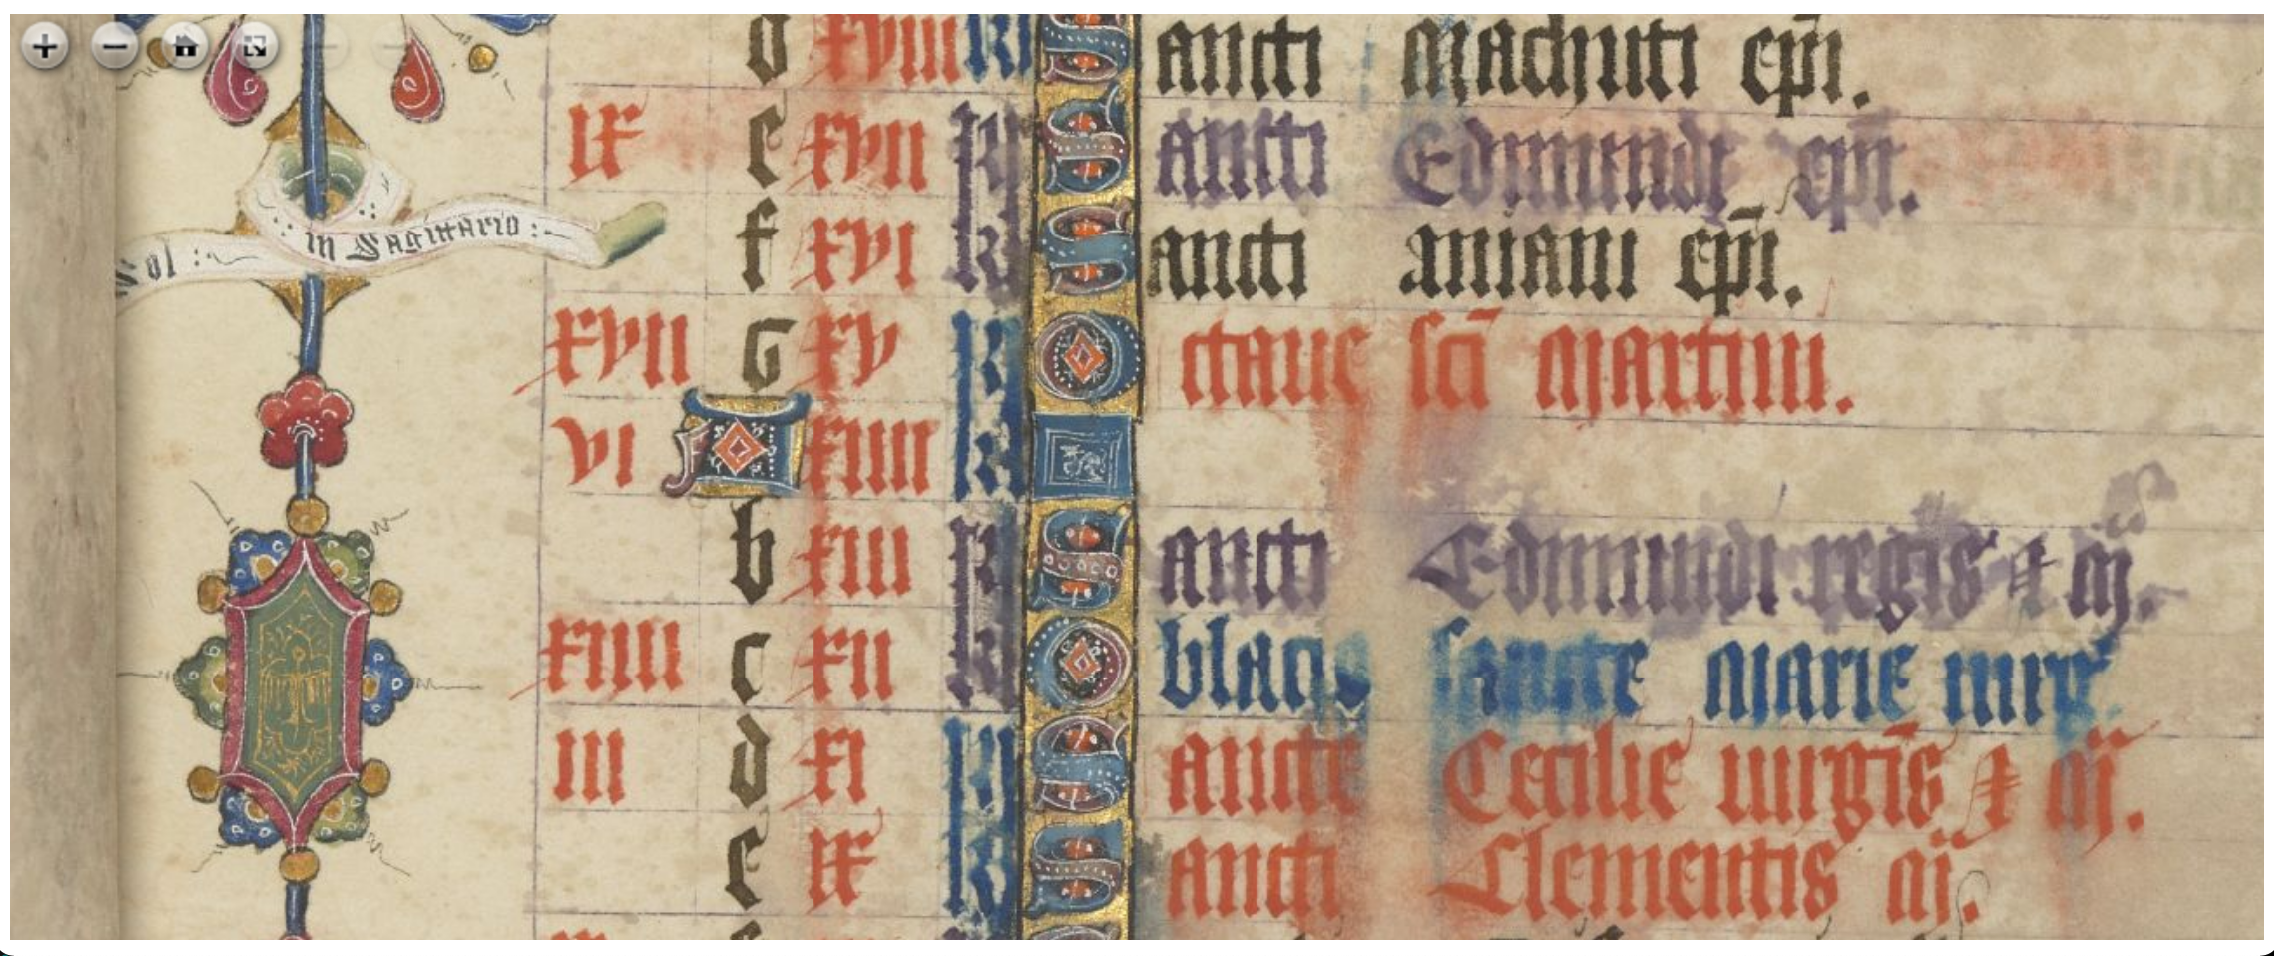 d xviii kl Sancti Machuti ep̄i.
ix e xvii kl Sancti Edmundi ep̄i.
Sol :~ in Sagittario :~
f xvi kl Sancti aniani ep̄i.
xvii G xv kl Octaue sc̄i Martini.
vi A xiiii kl
b xiii kl Sancti Edmundi regis & m̄.
xiiii c xii kl Oblacio sancte Marie uirḡ.
iii d xi kl Sancte Cecilie uirgīs & m̄.
e ix kl Sancti Clementis m̄.